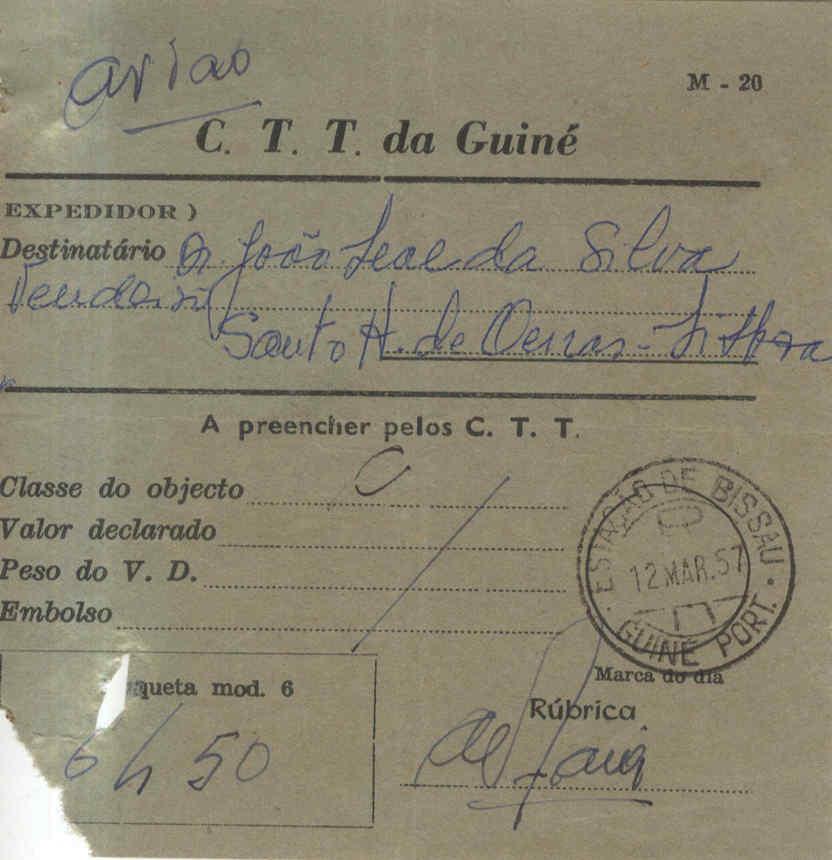 avião
M - 20
C. T. T. da Guiné
EXPEDIDOR )
Destinatário Dr. João Leal da Silva
Santo A. de Oeiras - Lisboa
A preencher pelos C. T. T.
Classe do objecto C
Valor declarado
Peso do V. D.
Embolso
ESTAÇÃO DE BISSAU
12 MAR. 57
GUINÉ PORT.
Marca do dia
queta mod. 6
Rúbrica
50